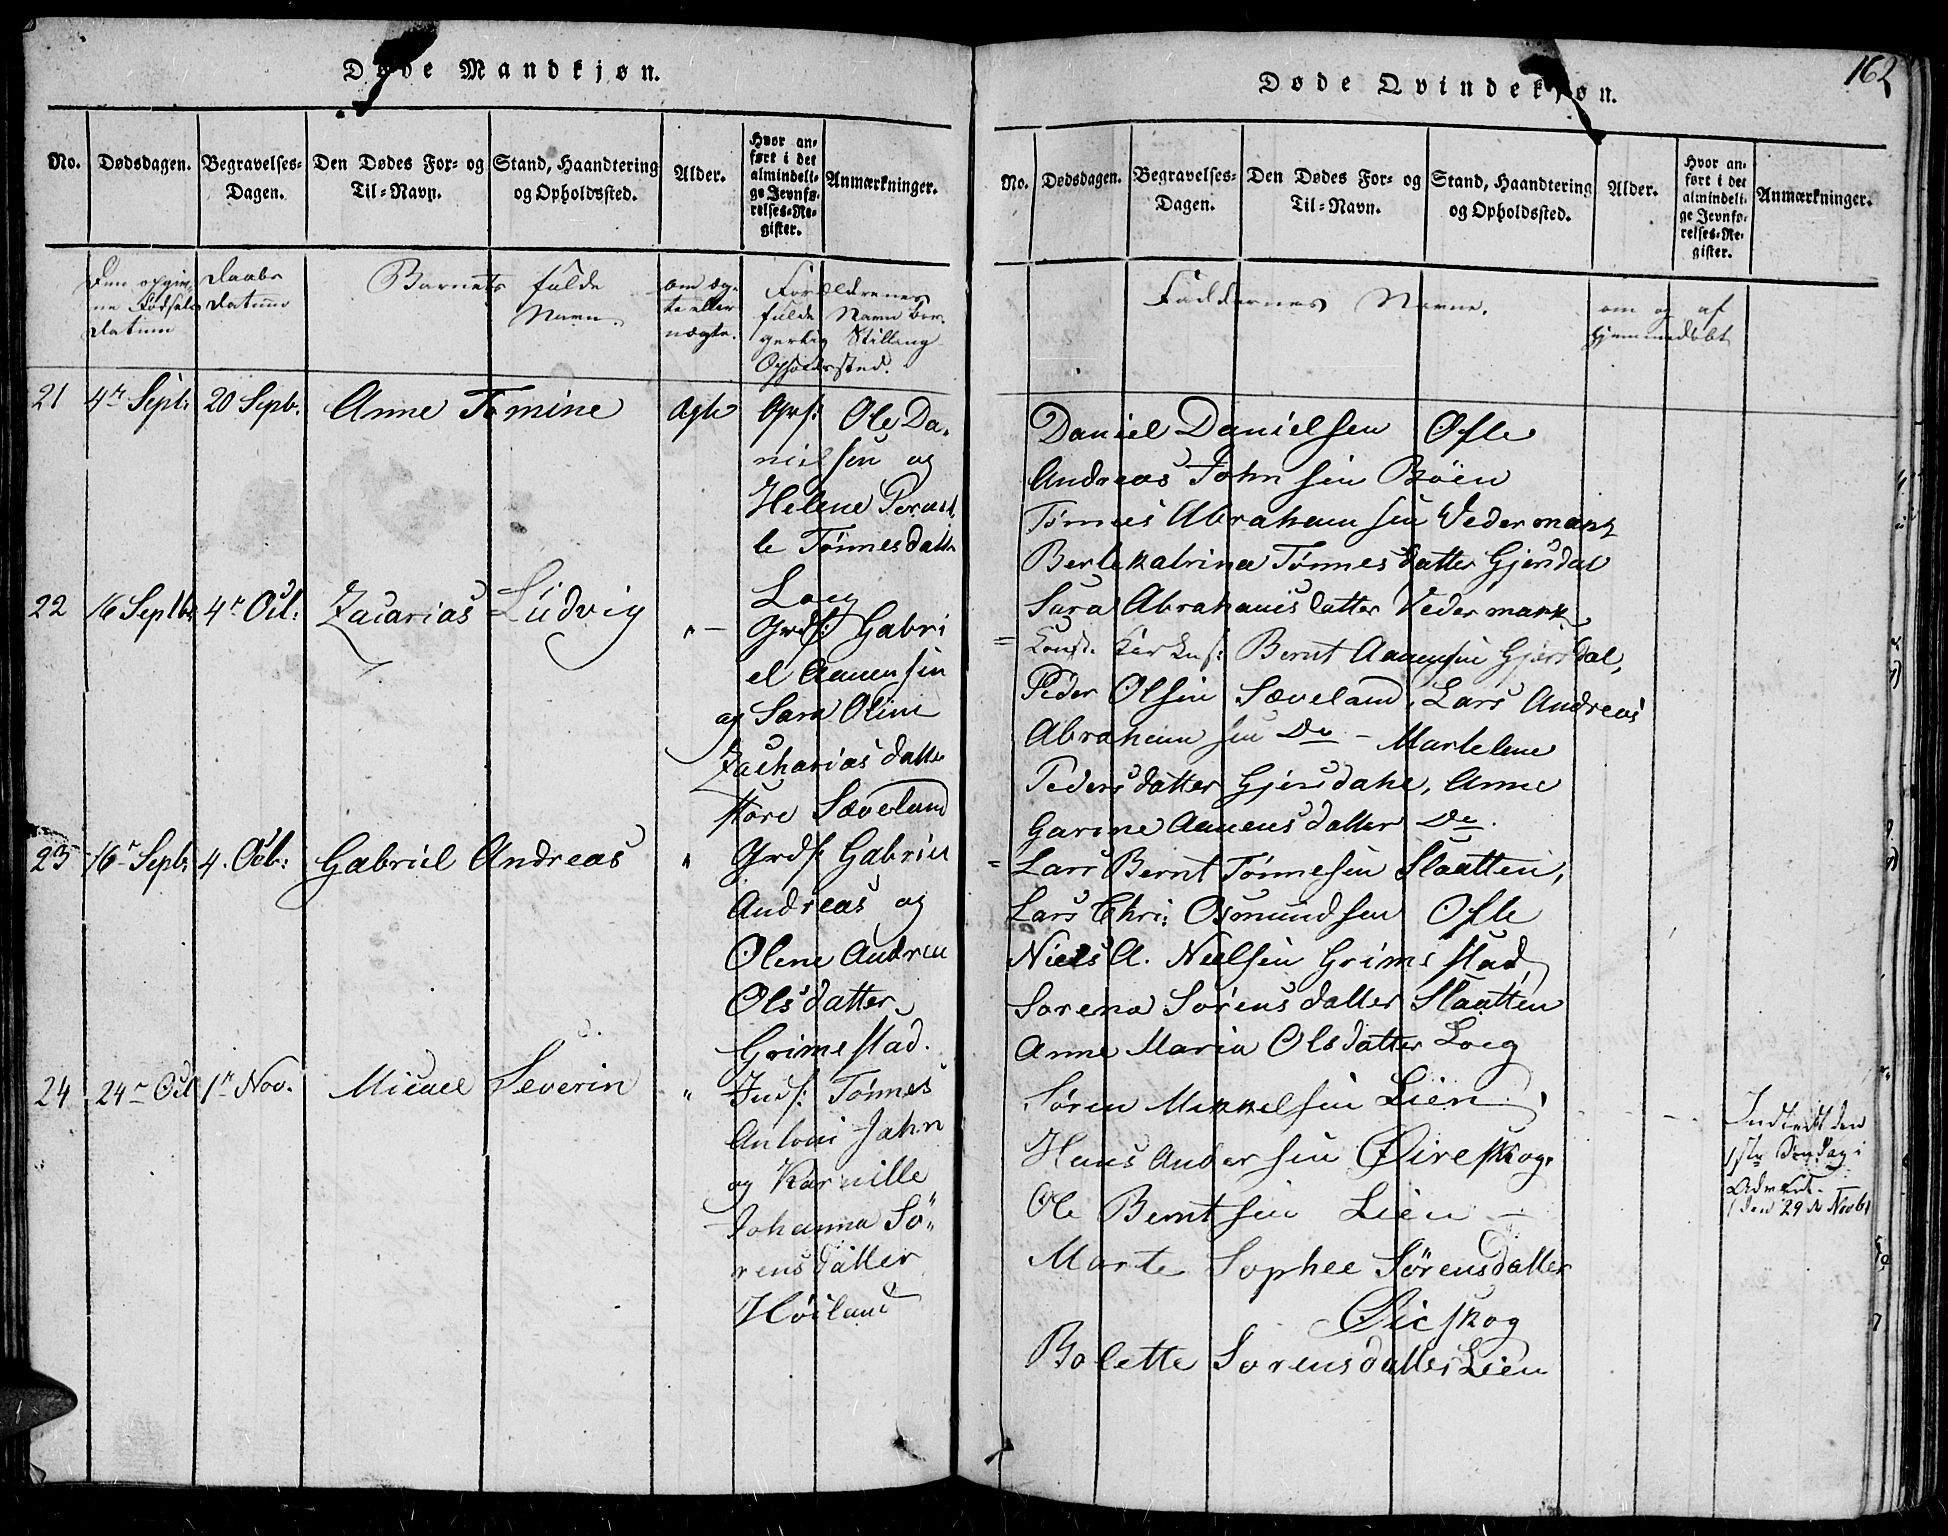 Døde Mandkjøn.
No. Dødsdagen. Begravelses-Dagen. Den Dødes For- og Til-Navn. Stand, Haandtering og Opholdssted. Alder. Hvor anført i det almindelige Jevnførelses-Register. Anmærkninger.
Den opgivne Fødsels Datum
Daabs Datum
Barnets fulde Navn.
om ægte eller uægte.
Forældrenes fulde Navn borgerlig Stilling Opholdssted.
21 4de Septr 20 Septr. Anne Tomine Ægte Grf: Ole Da-
nielsen og
Helene Pernil-
le Tönnesdatter
Loeg
22 16 Septbr 4de Oct: Zacarias Ludvig " — Grdf: Gabri
el Aanensen
og Sara Oline
Zacharias datter
store Sæveland
23 16 Septr 4. Oct: Gabriel Andreas " Grdf: Gabriel
Andreas og
Olene Andrea
Olsdatter
Grimestad.
24 24 Oct 1te Nov. Micael Severin " Indf: Tønnes
Antoni Jahn
og Karnille
Johanna Sö-
rensdatter
Höiland
Døde Qvindekjøn.
162
No. Dødsdagen. Begravelses-Dagen. Den Dødes For- og Til-Navn. Stand, Haandtering og Opholdssted. Alder. Hvor anført i det almindelige Jevnførelses-Register. Anmærkninger.
Faddernes Navne.
om og af hjemmedøbt
Daniel Danielsen Øfte
Andreas Johnsen Böen
Tønnes Abrahamsen Vedermark
Berte Katrina Tønnesdatter Gjersdal
Sara Abrahamsdatter Vedermark
= Konst. Kirkes: Bernt Aanensen Gjersdal,
Peder Olsen Sæveland, Lars Andreas
Abrahamsen Do — Martelene
Pedersdatter Gjersdahl, Anne
Garine Aanensdatter Do.
= Lars Bernt Tönnesen Slaatten,
Lars Chri: Osmundsen Øfte
Niels A. Nielsen Grimestad,
Sorena Sörensdatter Slaatten
Anne Maria Olsdatter Loeg
Søren Mikkelsen Lien,
Hans Andersen Øireskog.
Ole Berntsen Lien —
Marte Sophie Sörensdatter
Øieskog
Bolette Sorensdatter Lien
Indledt den
1ste Søndag i
Advent.
den 29de Novbr